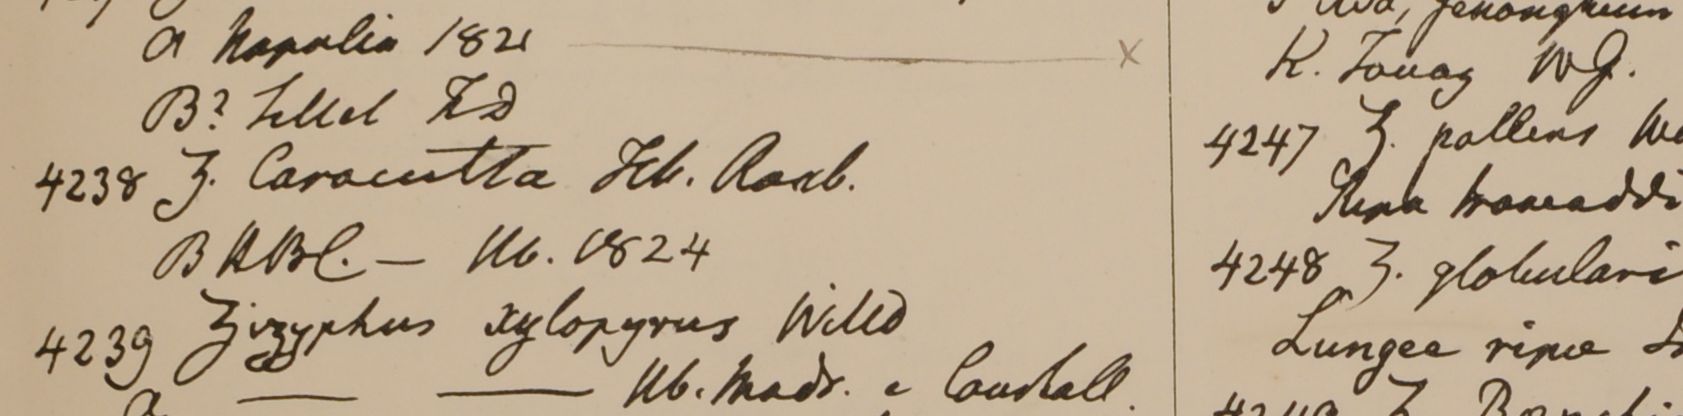 a Napalia 1821
B? Sillet FD
4238 Z. Caracutta Hb. Roxb.
B HBC. — Hb. 1824
4239 Zizyphus xylopyrus Willd
— — Hb. Madr. e Courtall.
K. Tavoy WG.
4247 Z. pallens
4248 Z. globularis
Lungee ripae